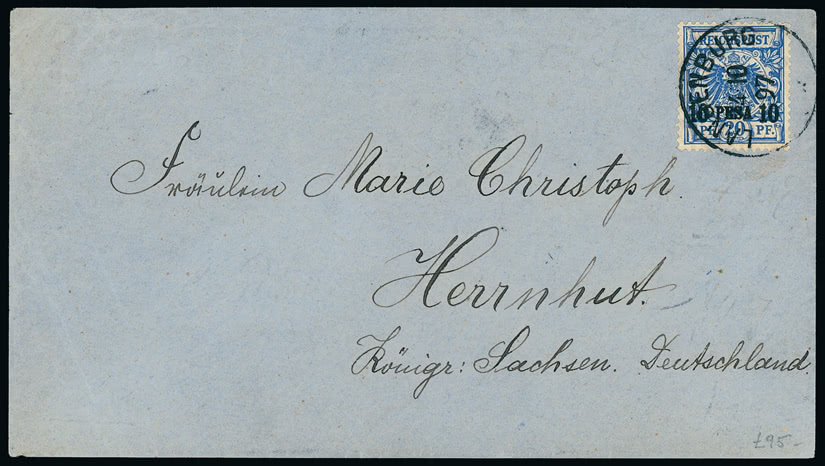 REICHSPOST
10 PESA 10
PF. 20 PF.
LANGENBURG
10 97
Fräulein Marie Christoph.
Herrnhut.
Königr: Sachsen. Deutschland.
£95-